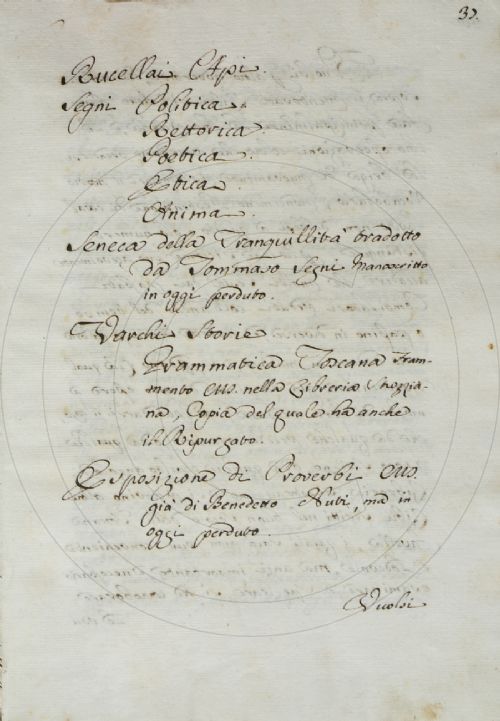 39.
Rucellai Api
Segni Politica.
Rettorica.
Poetica.
Etica.
Anima.
Seneca della Tranquillità tradotto
da Tommaso Segni Manoscritto
in oggi perduto.
Varchi Storie
Grammatica Toscana Fram-
mento MS. nella Libreria Strozzia-
na, Copia del quale ha anche
il Ripurgato.
Esposizione di Proverbi MS.
già di Benedetto Nuti, ma in
oggi perduto.
Vuolsi